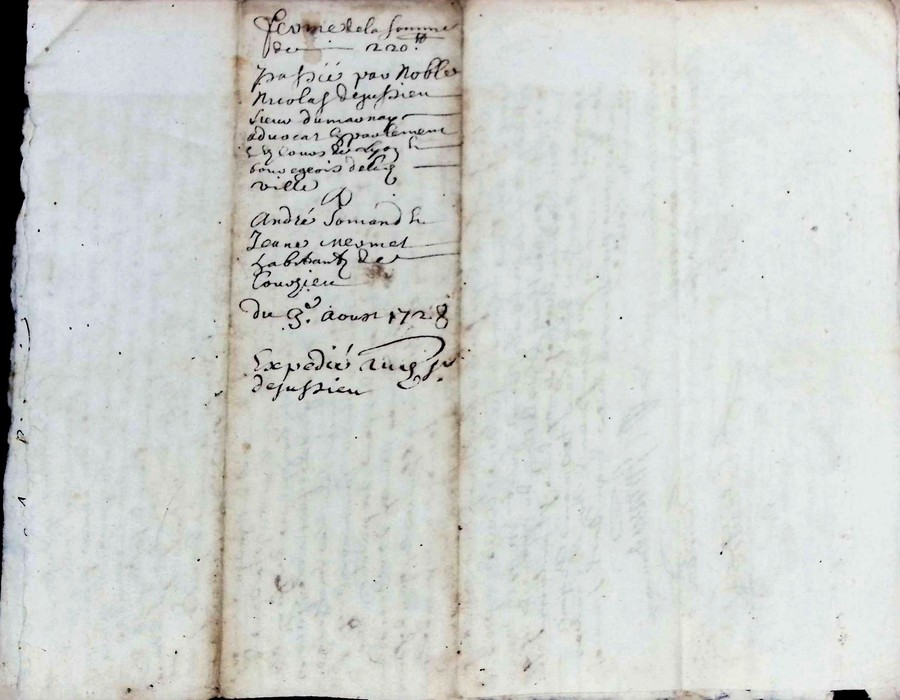 ferme de la somme
de 220#
passée par Noble
Nicolas dejussieu
sieur dumarnay
advocat en parlement
et cours de Lyon &
bourgeois de lad
ville
A
André Somand &
Jeane mermet
habitant de
Courzieu
du 3e. Aoust 1728
Expedié aud Sr.
dejussieu